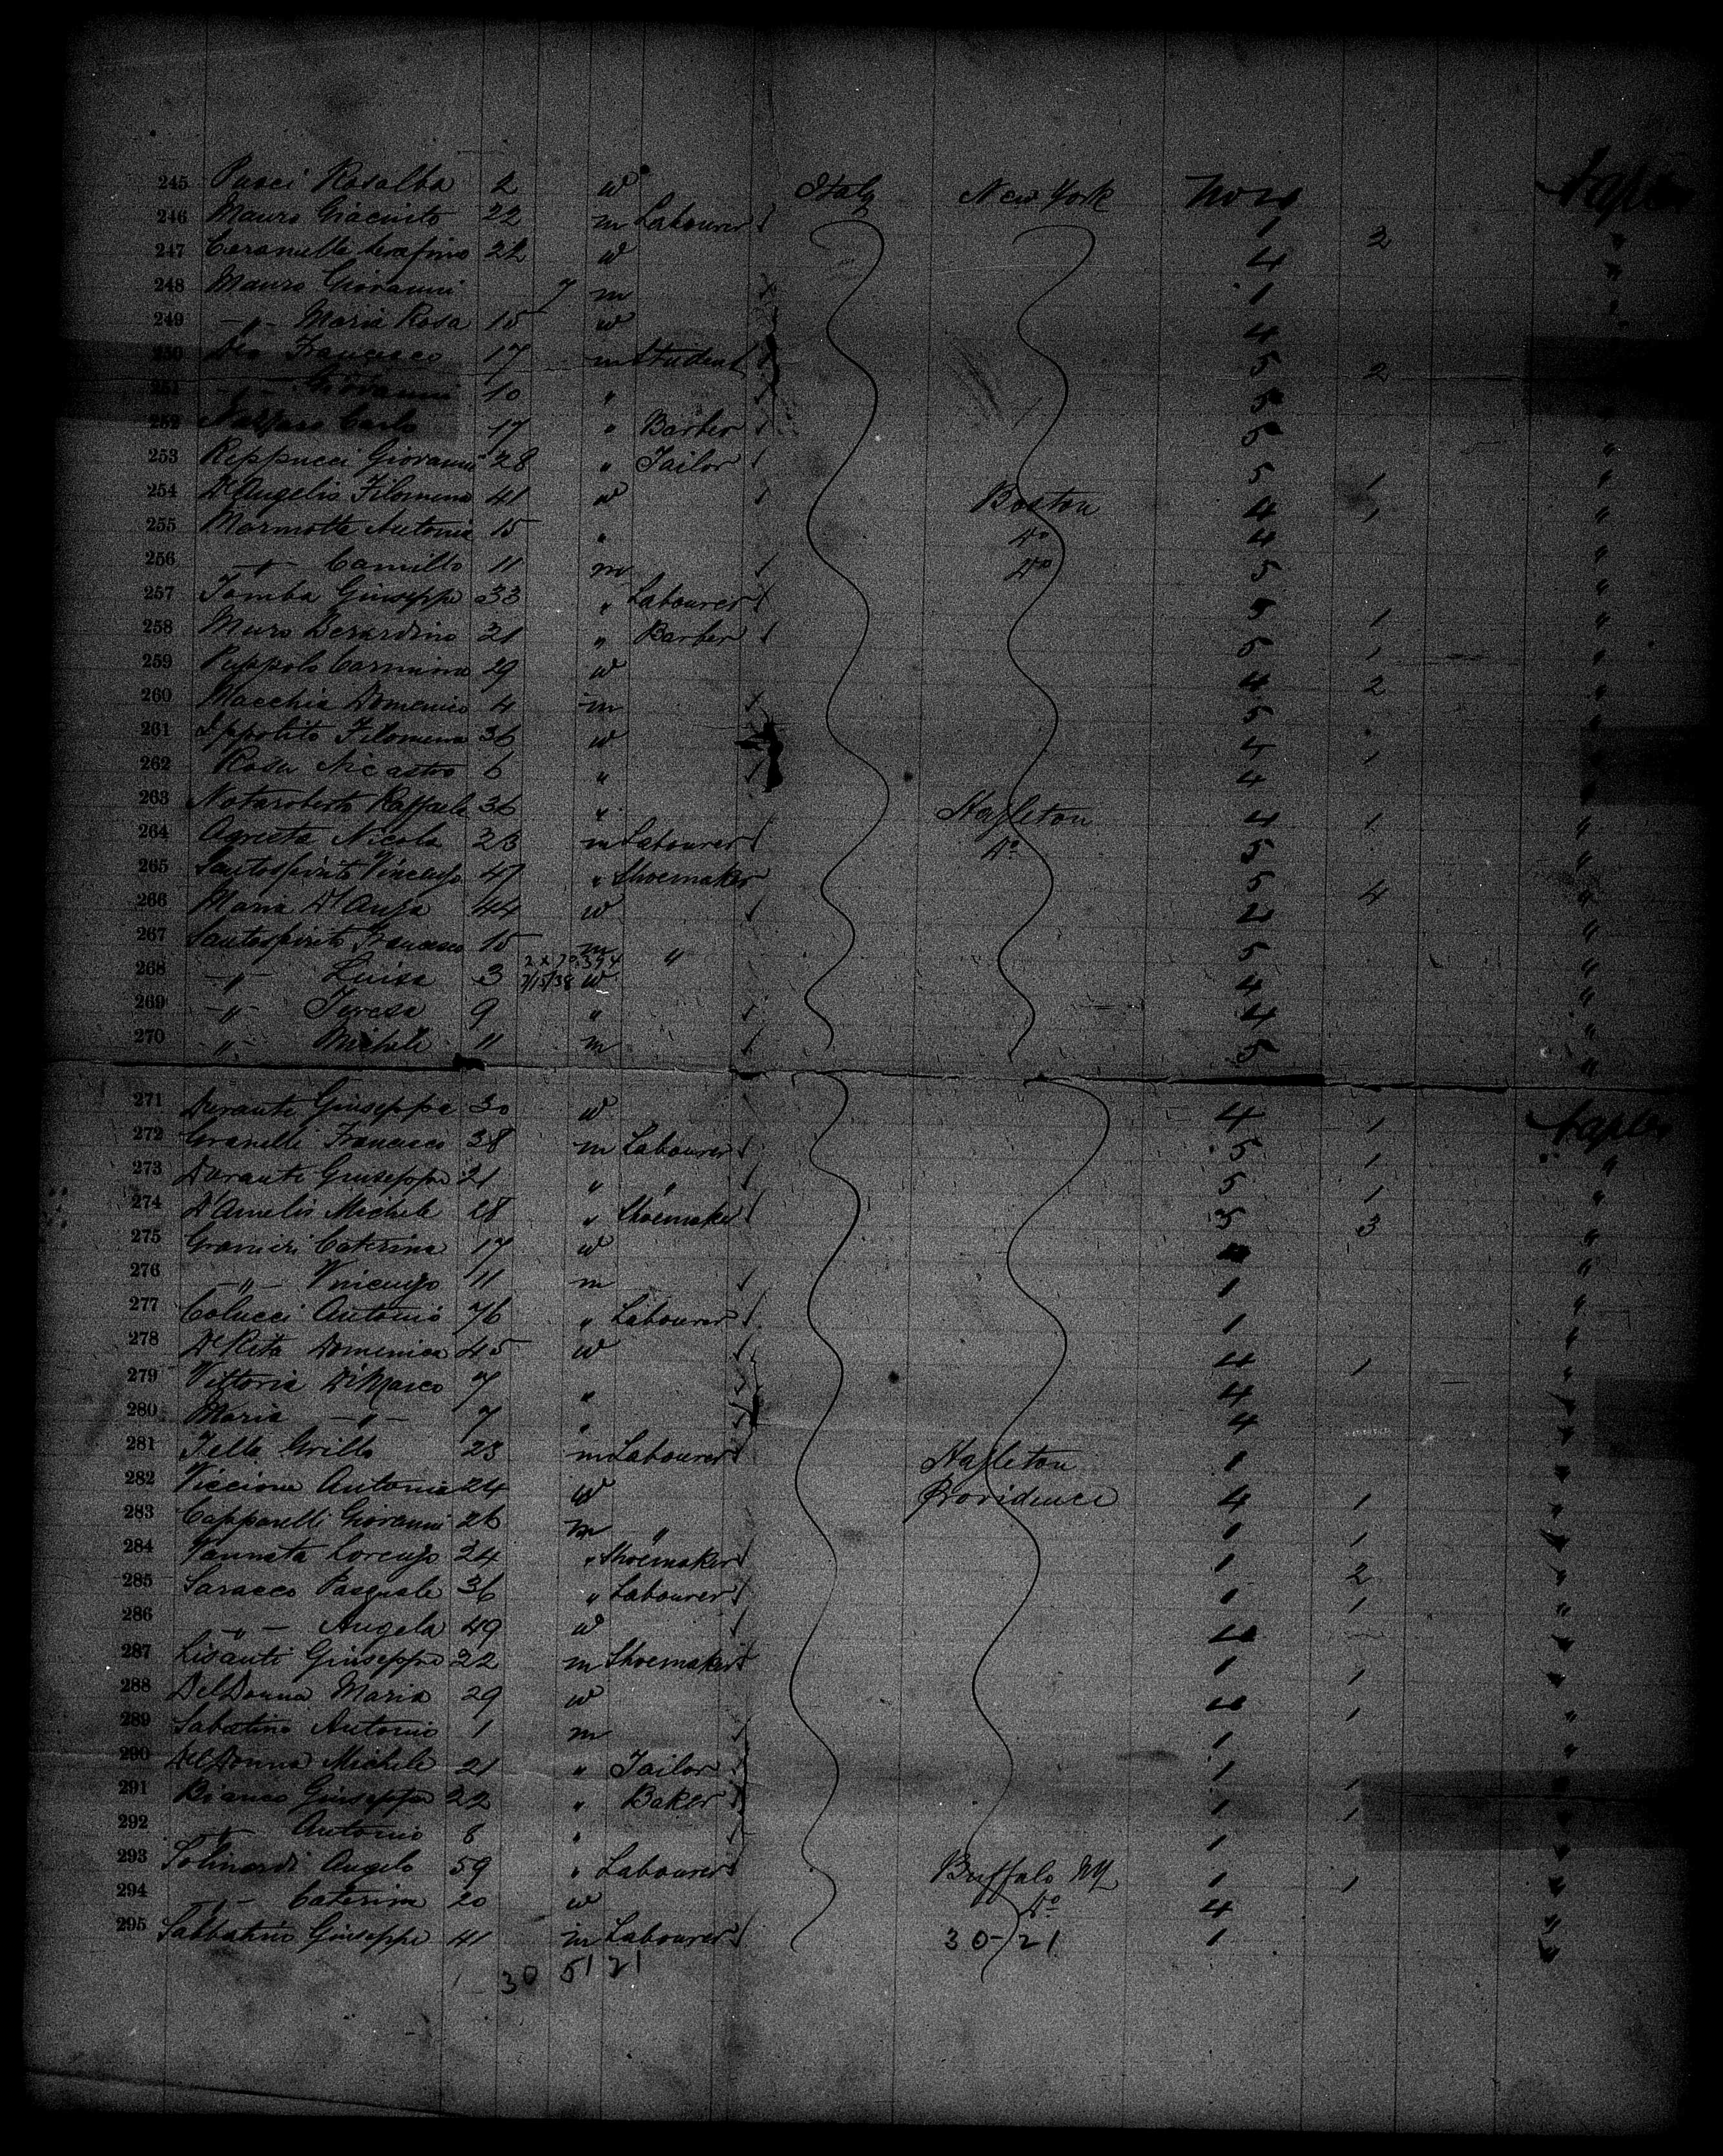 245 Pucci Rosalba 2 w Italy New York Naples
246 Mauro Giacinto 22 m Labourer 1 2 "
247 Serafina 22 w 4 "
248 Mauro Giovanni 7 m 1 "
249 -"- Maria Rosa 15 w 4
250 Francesco 17 m Student 5 2
251 -"- Giovanni 10 " 5 "
252 Carlo 17 " Barber 5 "
253 Reppucci Giovanni 28 " Tailor 5 1 "
254 D'Angelis Filomena 41 w Boston 4 1 "
255 Marmotta Antonia 15 " do 4 "
256 -"- Camillo 11 m do 5 "
257 Tomba Giuseppe 33 " Labourer 5 1 "
258 Muro Berardino 21 " Barber 5 1 "
259 Peppolo Carmina 29 w 4 2 "
260 Macchia Domenico 4 m 5 "
261 Ippolito Filomena 36 w 4 1 "
262 Rosa Nicastro 6 " 4
263 Notaroberto Raffaela 36 " Stapleton 4 1 "
264 Agresta Nicola 23 m Labourer do 5 "
265 Santospirito Vincenzo 47 " Shoemaker 5 4 "
266 Maria D'Anza 44 w "
267 Santospirito Francesco 15 m " 5 "
268 -"- Luisa 3 w 4 "
269 -"- Teresa 9 " 4 "
270 -"- Michele 11 m 5 "
271 Durante Giuseppa 30 w 4 1 Naples
272 Granelli Francesco 38 m Labourer 5 1 "
273 Durante Giuseppe 21 " " 5 1 "
274 D'Amelis Michele 28 " Shoemaker 5 3 "
275 Granieri Caterina 17 w "
276 -"- Vincenzo 11 m 1 "
277 Colucci Antonio 76 " Labourer 1 "
278 De Rita Domenica 45 w 4 1 "
279 Vittoria DiMarco 7 " 4 "
280 Maria -"- 7 " 4 "
281 Tella Grillo 23 m Labourer Stapleton 1 "
282 Viccione Antonia 24 w Providence 4 1 "
283 Capparelli Giovanni 26 m " 1 1 "
284 Vannata Lorenzo 24 " Shoemaker 1 2 "
285 Saracco Pasquale 36 " Labourer 1 1 "
286 -"- Angela 49 w 4 "
287 Lisanti Giuseppe 22 m Shoemaker 1 1 "
288 DelDonna Maria 29 w 4 1 "
289 Sabatino Antonio 1 m 1 "
290 DelDonna Michele 21 " Tailor 1 1 "
291 Bianco Giuseppe 22 " Baker 1 1 "
292 -"- Antonio 8 " 1 "
293 Angelo 59 " Labourer Buffalo NY 1 1 "
294 -"- Caterina 20 w do 4 "
295 Sabbatino Giuseppe 41 m Labourer 30-21 1 "
30 51 21